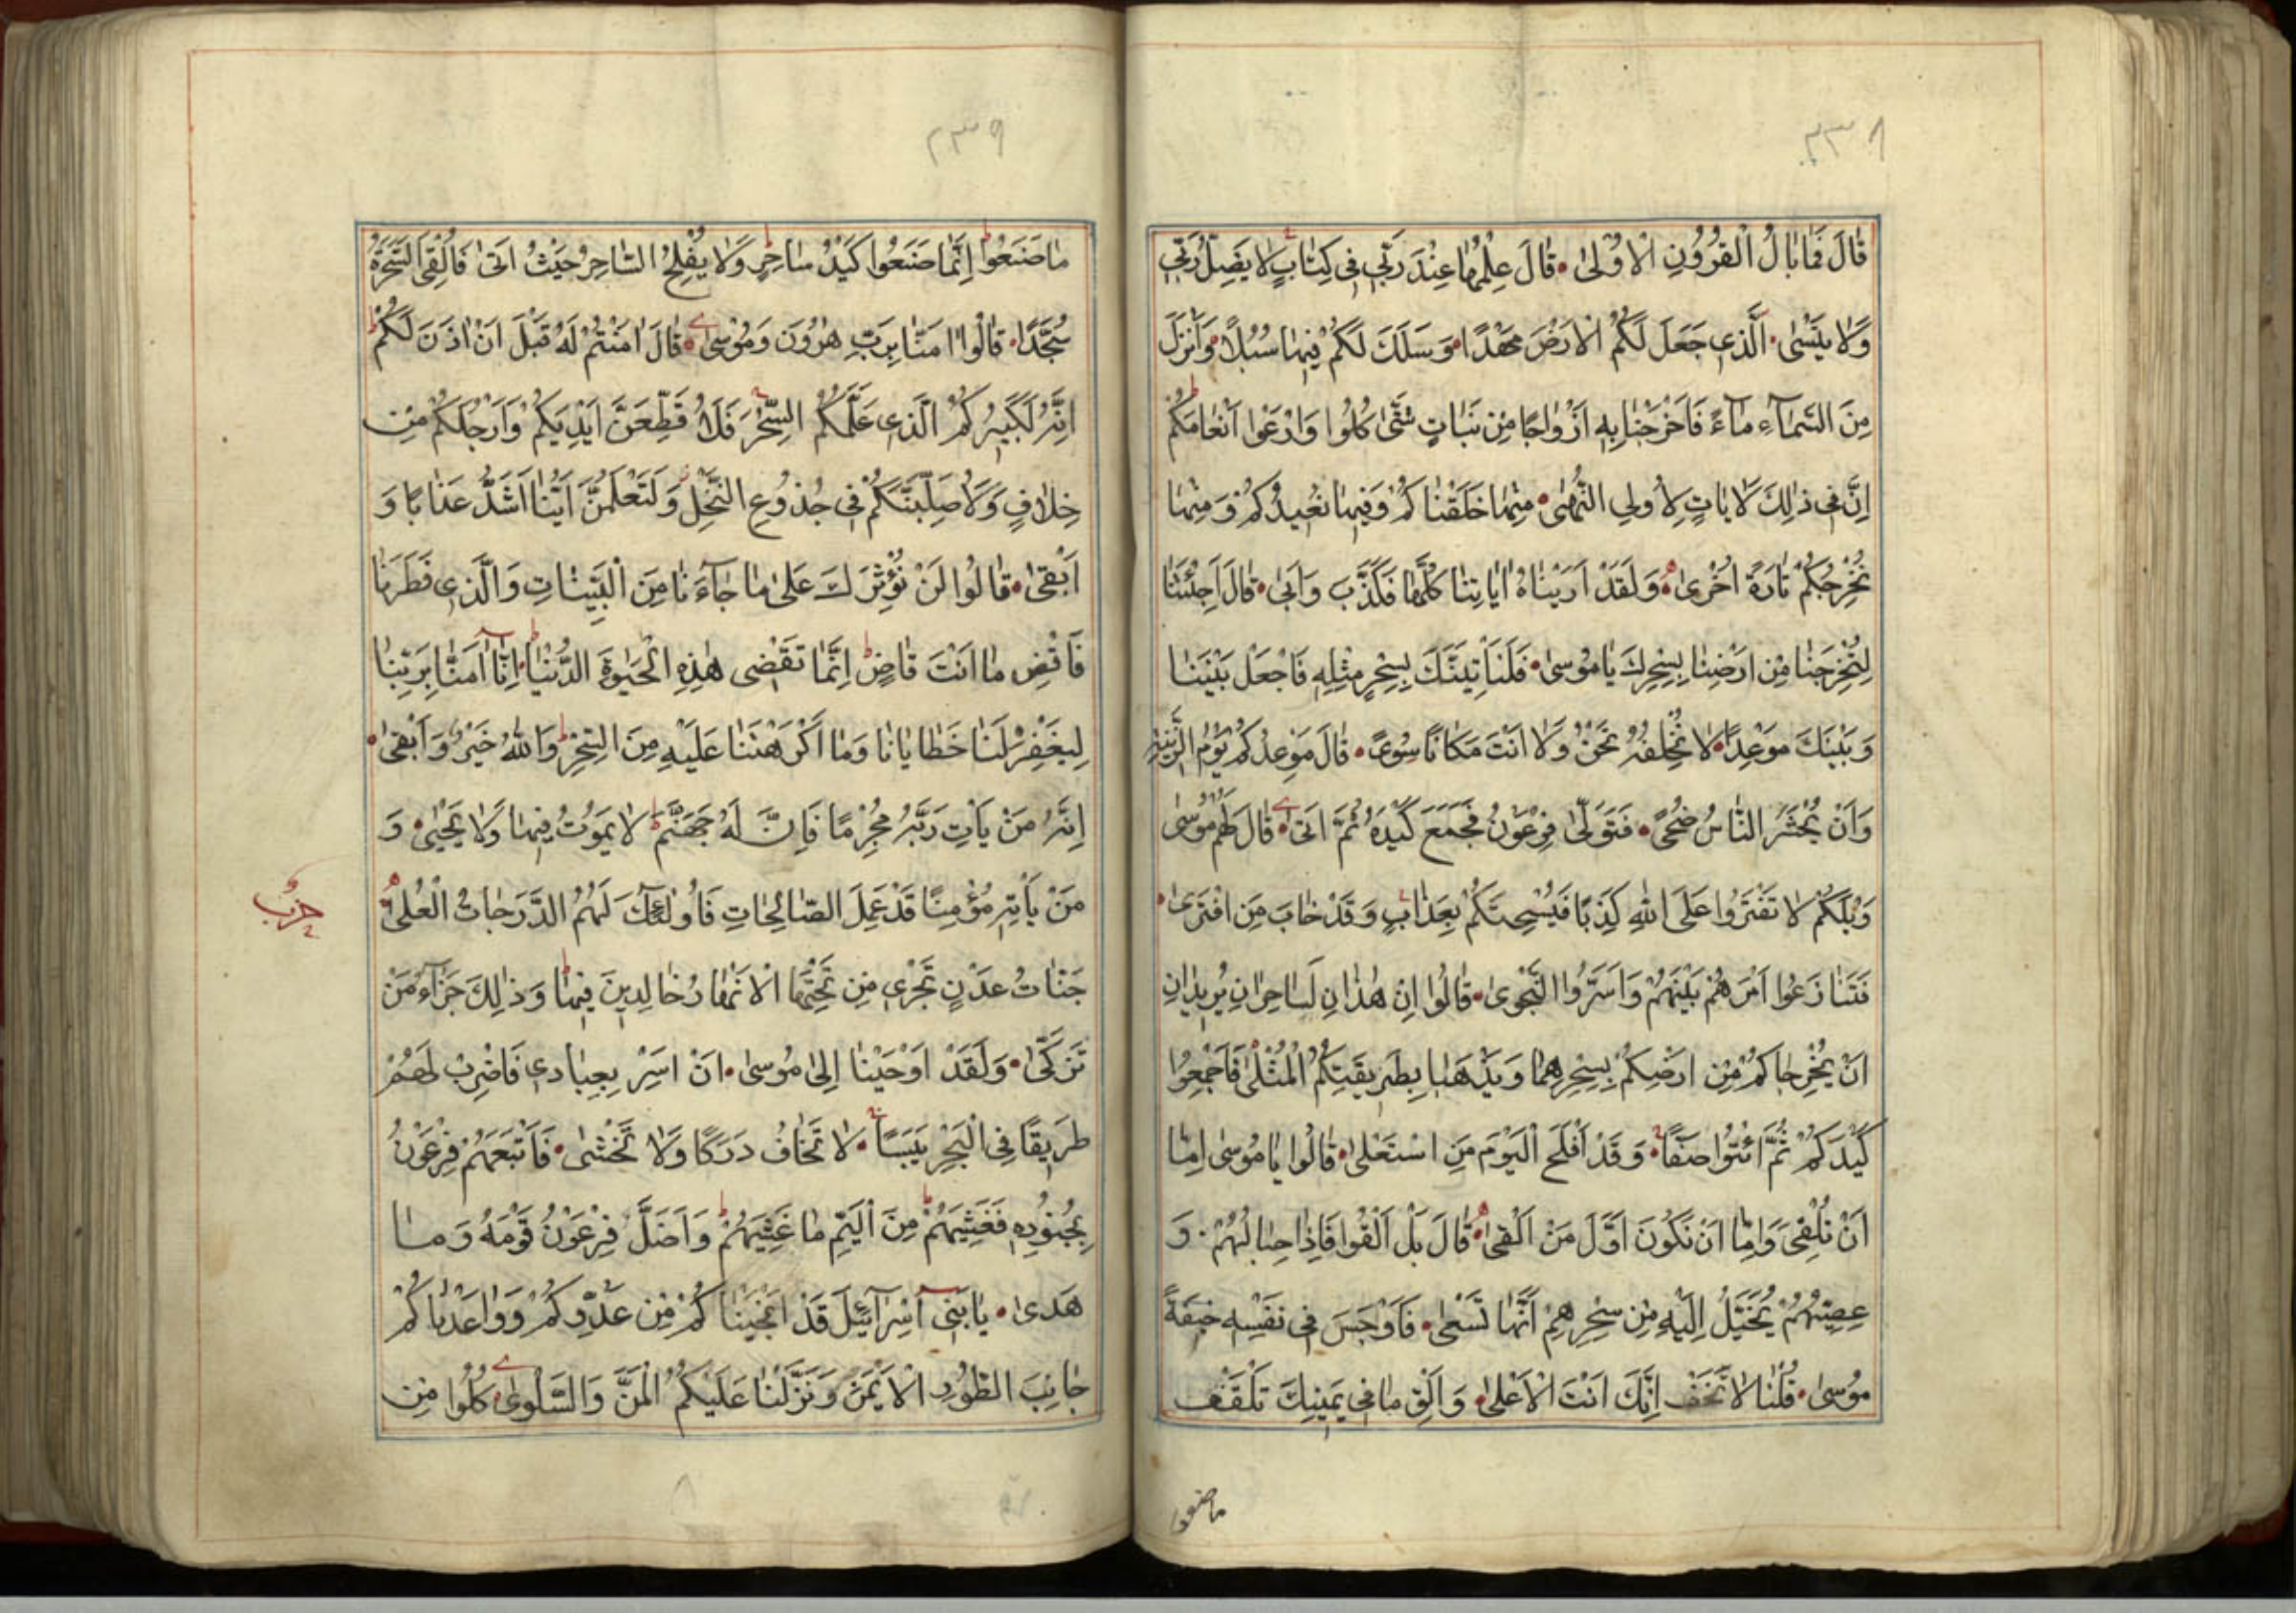 ٢٣٨
قَالَ فَمَا بَالُ الْقُرُونِ الْاُولٰى قَالَ عِلْمُهَا عِنْدَ رَبِّي فِي كِتَابٍ لَا يَضِلُّ رَبِّي
وَلَا يَنْسٰى الَّذِي جَعَلَ لَكُمُ الْاَرْضَ مَهْدًا وَسَلَكَ لَكُمْ فِيهَا سُبُلًا وَاَنْزَلَ
مِنَ السَّمَآءِ مَآءً فَاَخْرَجْنَا بِهِ اَزْوَاجًا مِنْ نَبَاتٍ شَتّٰى كُلُوا وَارْعَوْا اَنْعَامَكُمْ
اِنَّ فِي ذٰلِكَ لَاٰيَاتٍ لِاُولِي النُّهٰى مِنْهَا خَلَقْنَاكُمْ وَفِيهَا نُعِيدُكُمْ وَمِنْهَا
نُخْرِجُكُمْ تَارَةً اُخْرٰى وَلَقَدْ اَرَيْنَاهُ اٰيَاتِنَا كُلَّهَا فَكَذَّبَ وَاَبٰى قَالَ اَجِئْتَنَا
لِتُخْرِجَنَا مِنْ اَرْضِنَا بِسِحْرِكَ يَا مُوسٰى فَلَنَاْتِيَنَّكَ بِسِحْرٍ مِثْلِهِ فَاجْعَلْ بَيْنَنَا
وَبَيْنَكَ مَوْعِدًا لَا نُخْلِفُهُ نَحْنُ وَلَا اَنْتَ مَكَانًا سُوًى قَالَ مَوْعِدُكُمْ يَوْمُ الزِّينَةِ
وَاَنْ يُحْشَرَ النَّاسُ ضُحًى فَتَوَلّٰى فِرْعَوْنُ فَجَمَعَ كَيْدَهُ ثُمَّ اَتٰى قَالَ لَهُمْ مُوسٰى
وَيْلَكُمْ لَا تَفْتَرُوا عَلَى اللّٰهِ كَذِبًا فَيُسْحِتَكُمْ بِعَذَابٍ وَقَدْ خَابَ مَنِ افْتَرٰى
فَتَنَازَعُوا اَمْرَهُمْ بَيْنَهُمْ وَاَسَرُّوا النَّجْوٰى قَالُوا اِنْ هٰذَانِ لَسَاحِرَانِ يُرِيدَانِ
اَنْ يُخْرِجَاكُمْ مِنْ اَرْضِكُمْ بِسِحْرِهِمَا وَيَذْهَبَا بِطَرِيقَتِكُمُ الْمُثْلٰى فَاَجْمِعُوا
كَيْدَكُمْ ثُمَّ ائْتُوا صَفًّا وَقَدْ اَفْلَحَ الْيَوْمَ مَنِ اسْتَعْلٰى قَالُوا يَا مُوسٰى اِمَّا
اَنْ تُلْقِيَ وَاِمَّا اَنْ نَكُونَ اَوَّلَ مَنْ اَلْقٰى قَالَ بَلْ اَلْقُوا فَاِذَا حِبَالُهُمْ وَ
عِصِيُّهُمْ يُخَيَّلُ اِلَيْهِ مِنْ سِحْرِهِمْ اَنَّهَا تَسْعٰى فَاَوْجَسَ فِي نَفْسِهِ خِيفَةً
مُوسٰى قُلْنَا لَا تَخَفْ اِنَّكَ اَنْتَ الْاَعْلٰى وَاَلْقِ مَا فِي يَمِينِكَ تَلْقَفْ
ما صنعوا
٢٣٩
مَا صَنَعُوا اِنَّمَا صَنَعُوا كَيْدُ سَاحِرٍ وَلَا يُفْلِحُ السَّاحِرُ حَيْثُ اَتٰى فَاُلْقِيَ السَّحَرَةُ
سُجَّدًا قَالُوا اٰمَنَّا بِرَبِّ هٰرُونَ وَمُوسٰى قَالَ اٰمَنْتُمْ لَهُ قَبْلَ اَنْ اٰذَنَ لَكُمْ
اِنَّهُ لَكَبِيرُكُمُ الَّذِي عَلَّمَكُمُ السِّحْرَ فَلَاُقَطِّعَنَّ اَيْدِيَكُمْ وَاَرْجُلَكُمْ مِنْ
خِلَافٍ وَلَاُصَلِّبَنَّكُمْ فِي جُذُوعِ النَّخْلِ وَلَتَعْلَمُنَّ اَيُّنَا اَشَدُّ عَذَابًا وَ
اَبْقٰى قَالُوا لَنْ نُؤْثِرَكَ عَلٰى مَا جَآءَنَا مِنَ الْبَيِّنَاتِ وَالَّذِي فَطَرَنَا
فَاقْضِ مَا اَنْتَ قَاضٍ اِنَّمَا تَقْضِي هٰذِهِ الْحَيٰوةَ الدُّنْيَا اِنَّآ اٰمَنَّا بِرَبِّنَا
لِيَغْفِرَ لَنَا خَطَايَانَا وَمَا اَكْرَهْتَنَا عَلَيْهِ مِنَ السِّحْرِ وَاللّٰهُ خَيْرٌ وَاَبْقٰى
اِنَّهُ مَنْ يَاْتِ رَبَّهُ مُجْرِمًا فَاِنَّ لَهُ جَهَنَّمَ لَا يَمُوتُ فِيهَا وَلَا يَحْيٰى وَ
مَنْ يَاْتِهِ مُؤْمِنًا قَدْ عَمِلَ الصَّالِحَاتِ فَاُولٰٓئِكَ لَهُمُ الدَّرَجَاتُ الْعُلٰى
حزب
جَنَّاتُ عَدْنٍ تَجْرِي مِنْ تَحْتِهَا الْاَنْهَارُ خَالِدِينَ فِيهَا وَذٰلِكَ جَزَآءُ مَنْ
تَزَكّٰى وَلَقَدْ اَوْحَيْنَا اِلٰى مُوسٰى اَنْ اَسْرِ بِعِبَادِي فَاضْرِبْ لَهُمْ
طَرِيقًا فِي الْبَحْرِ يَبَسًا لَا تَخَافُ دَرَكًا وَلَا تَخْشٰى فَاَتْبَعَهُمْ فِرْعَوْنُ
بِجُنُودِهِ فَغَشِيَهُمْ مِنَ الْيَمِّ مَا غَشِيَهُمْ وَاَضَلَّ فِرْعَوْنُ قَوْمَهُ وَمَا
هَدٰى يَا بَنِي اِسْرَآئِيلَ قَدْ اَنْجَيْنَاكُمْ مِنْ عَدُوِّكُمْ وَوَاعَدْنَاكُمْ
جَانِبَ الطُّورِ الْاَيْمَنَ وَنَزَّلْنَا عَلَيْكُمُ الْمَنَّ وَالسَّلْوٰى كُلُوا مِنْ